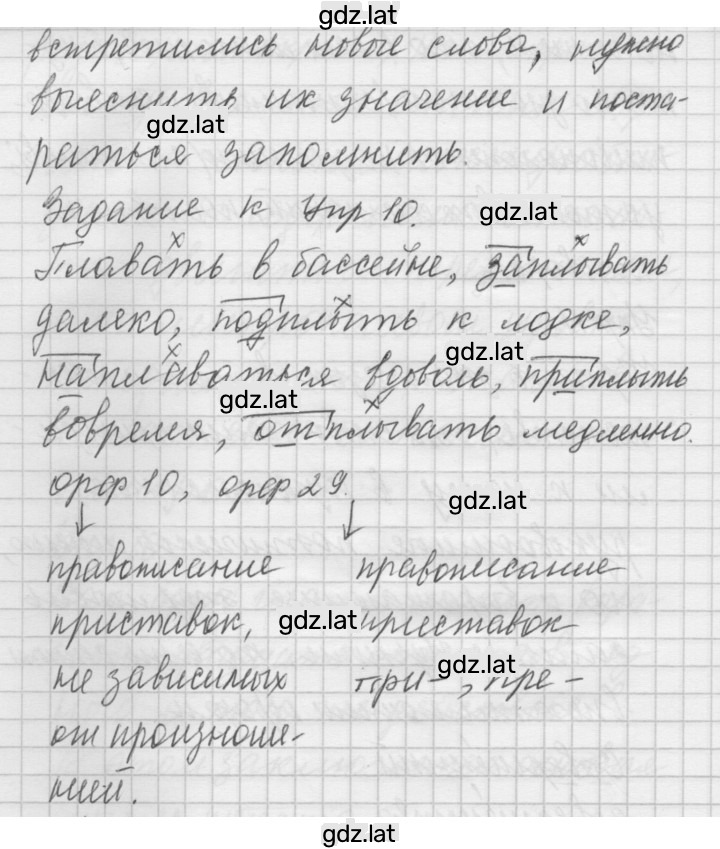 gdz.lat
встретились новые слова, нужно
выяснить их значение и поста-
gdz.lat
раться запомнить.
Задание к Упр 10.
gdz.lat
Плавать в бассейне, заплывать
далеко, подплыть к лодке,
gdz.lat
наплаваться вдоволь, приплыть
gdz.lat
вовремя, отплывать медленно.
орф 10, орф 29.
gdz.lat
правописание правописание
приставок, gdz.lat приставок
не зависимых при-, пре-
gdz.lat
от произноше-
ний.
gdz.lat